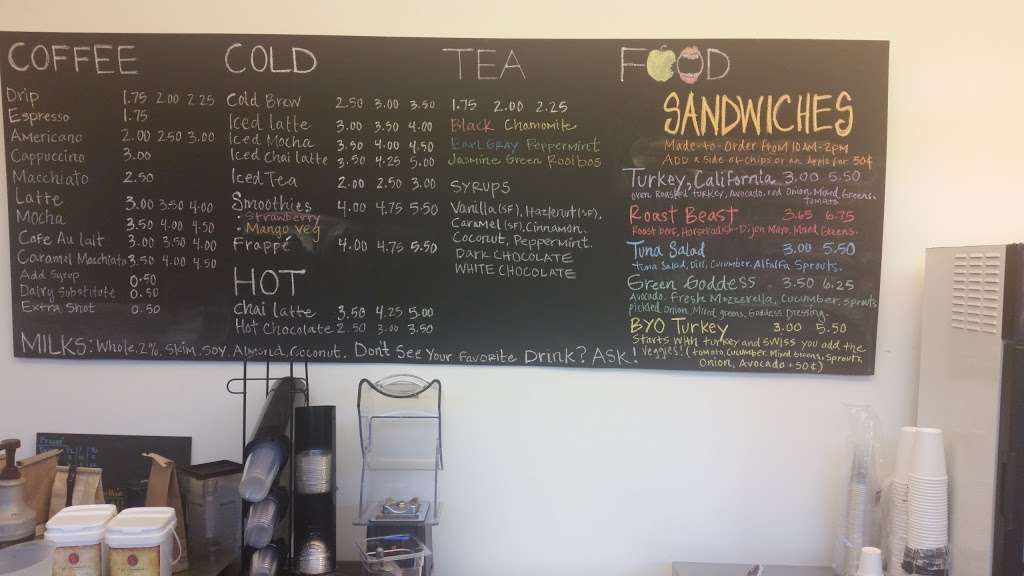 COFFEE
Drip 1.75 2.00 2.25
Espresso 1.75
Americano 2.00 2.50 3.00
Cappuccino 3.00
Macchiato 2.50
Latte 3.00 3.50 4.00
Mocha 3.50 4.00 4.50
Cafe Au lait 3.00 3.50 4.00
Caramel Macchiato 3.50 4.00 4.50
Add Syrup 0.50
Dairy Substitute 0.50
Extra Shot 0.50
COLD
Cold Brew 2.50 3.00 3.50
Iced latte 3.00 3.50 4.00
Iced Mocha 3.50 4.00 4.50
Iced Chai latte 3.50 4.25 5.00
Iced Tea 2.00 2.50 3.00
Smoothies 4.00 4.75 5.50
• Strawberry
• Mango veg
Frappé 4.00 4.75 5.50
HOT
Chai latte 3.50 4.25 5.00
Hot Chocolate 2.50 3.00 3.50
TEA
1.75 2.00 2.25
Black Chamomite
Earl Gray Peppermint
Jasmine Green Rooibos
SYRUPS
Vanilla (SF), Hazlenut (SF),
Caramel (SF), Cinnamon.
Coconut, Peppermint.
DARK CHOCOLATE
WHITE CHOCOLATE
FOOD
SANDWICHES
Made-to-Order from 10AM-2pm
ADD a side of chips or an Apple for 50¢
Turkey, California 3.00 5.50
oven Roasted turkey, Avocado, red Onion, Mixed Greens,
Tomato
Roast Beast 3.65 6.75
Roast Beef, Horseradish-Dijon Mayo, Mixed Greens.
Tuna Salad 3.00 5.50
Tuna Salad, Dill, Cucumber, Alfalfa Sprouts.
Green Goddess 3.50 6.25
Avocado, Fresh Mozzerella, Cucumber, sprouts
pickled Onion, Mixed greens, Goddess Dressing.
BYO Turkey 3.00 5.50
Starts with turkey and swiss you add the
Veggies! (tomato, Cucumber, Mixed Greens, Sprouts,
Onion, Avocado +50¢)
MILKS: Whole, 2%, Skim, Soy, Almond, Coconut. Don't See Your Favorite Drink? ASK!